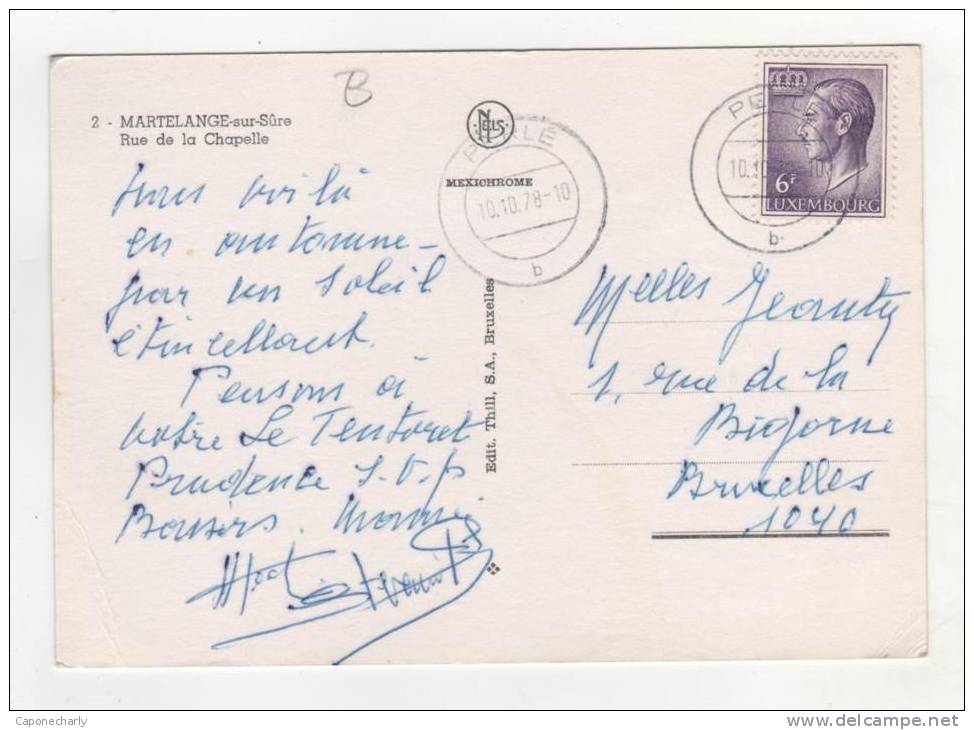 B
2 - MARTELANGE-sur-Sûre
Rue de la Chapelle
NELS
MEXICHROME
PERLÉ
10.10.78-10
b
PERLÉ
10.10.78-10
b
6F
LUXEMBOURG
voilà
en automne -
par un soleil
étincellant.
Pensons à
votre Le Tentoret
Prudence S.V.P
Baisers.
Edit. Thill, S.A., Bruxelles
Melles Jeanty
1, rue de la
Bigorne
Bruxelles
1040
Caponecharly
delcampe.net